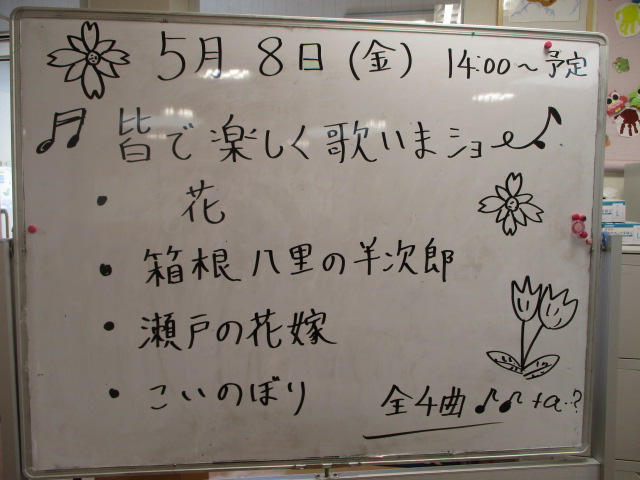 5月8日(金) 14:00～予定
皆で楽しく歌いまショー
・ 花
・ 箱根八里の半次郎
・ 瀬戸の花嫁
・ こいのぼり
全4曲♪♪+α・?